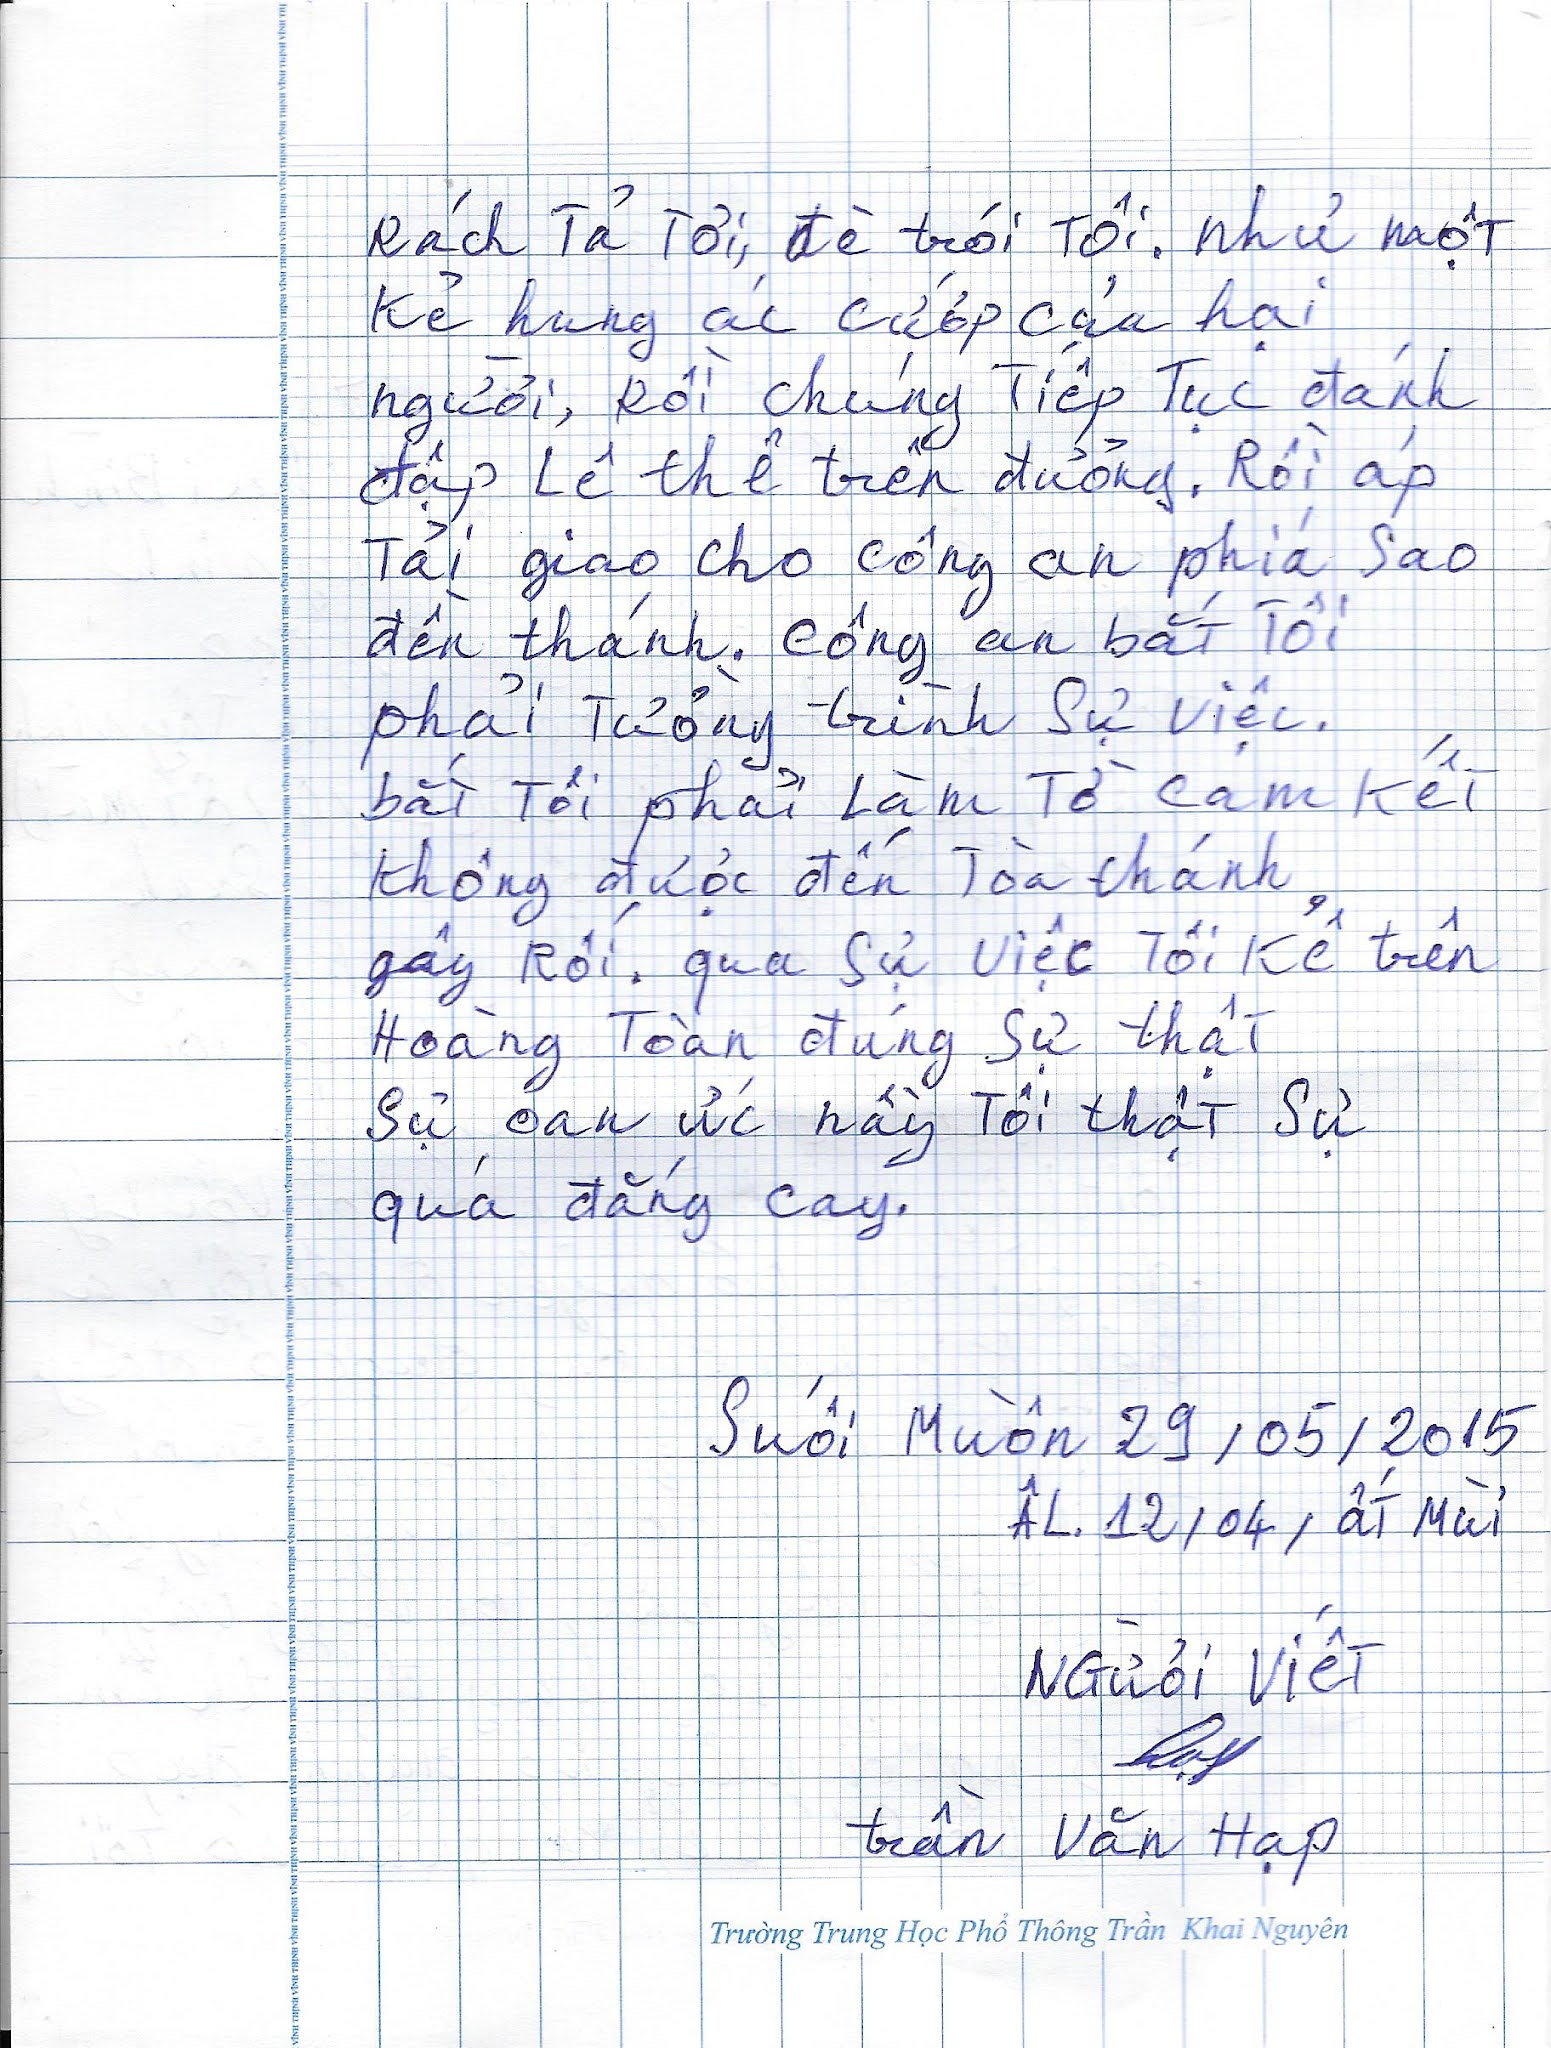 Rách Tả Tơi, đè trói Tôi. như một
Kẻ hung ác cướp của hại
người, Rồi chúng Tiếp Tục đánh
đập Lê thê trên đường. Rồi áp
Tải giao cho công an phiá Sao
đền thánh. công an bắt Tôi
phải Tường trình Sự việc.
bắt Tôi phải Làm Tờ cam Kết
Không được đến Tòa thánh
gây Rối. qua Sự việc Tôi Kể trên
Hoàng Toàn đúng Sự thật
Sự oan ức nầy Tôi thật Sự
quá đắng cay.
Suối Muồn 29/05/2015
ÂL. 12/04/ất Mùi
NGười Viết
trần Văn Hạp
Trường Trung Học Phổ Thông Trần Khai Nguyên
VĨNH THỊNH